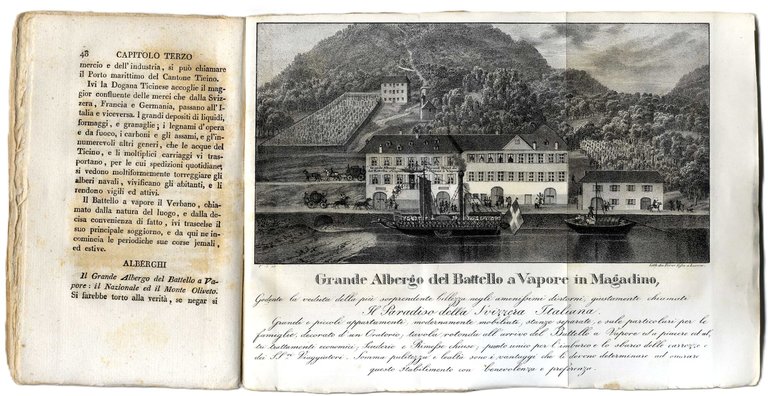 48 CAPITOLO TERZO
mercio e dell'industria, si può chiamare
il Porto marittimo del Cantone Ticino.
Ivi la Dogana Ticinese accoglie il mag-
gior confluente delle merci che dalla Sviz-
zera, Francia e Germania, passano all'I-
talia e viceversa. I grandi depositi di liquidi,
formaggi, e granaglie; i legnami d'opera
e da fuoco, i carboni e gli assami, e gl'in-
numerevoli altri generi, che le acque del
Ticino, e li moltiplici carriaggi vi tras-
portano, per le cui spedizioni quotidiane,
si vedono moltiformemente torreggiare gli
alberi navali, vivificano gli abitanti, e li
rendono vigili ed attivi.
Il Battello a vapore il Verbano, chia-
mato dalla natura del luogo, e dalla de-
cisa convenienza di fatto, ivi trascelse il
suo principale soggiorno, e da qui ne in-
comincia le periodiche sue corse jemali,
ed estive.
ALBERGHI
Il Grande Albergo del Battello a Va-
pore: il Nazionale ed il Monte Oliveto.
Si farebbe torto alla verità, so negar si
Grande Albergo del Battello a Vapore in Magadino,
Godente la veduta della più sorprendente bellezza negli amenissimi dintorni, giustamente chiamati
Il Paradiso della Svizzera Italiana.
Grandi e piccoli appartamenti, modernamente mobiliati, stanze separate, e sale particolari per le
famiglie, decorato d'un Oratorio, tavola rotonda all'arrivo del Battello a Vapore ed a piacere ed al,
tri trattamenti economici; Scuderie e Rimesse chiuse, punto unico per l'imbarco e lo sbarco delle carrozze e
dei Sig.ri Viaggiatori. Somma pulitezza e lealtà sono i vantaggi che li devono determinare ad onorare
questo Stabilimento con benevolenza e preferenza.